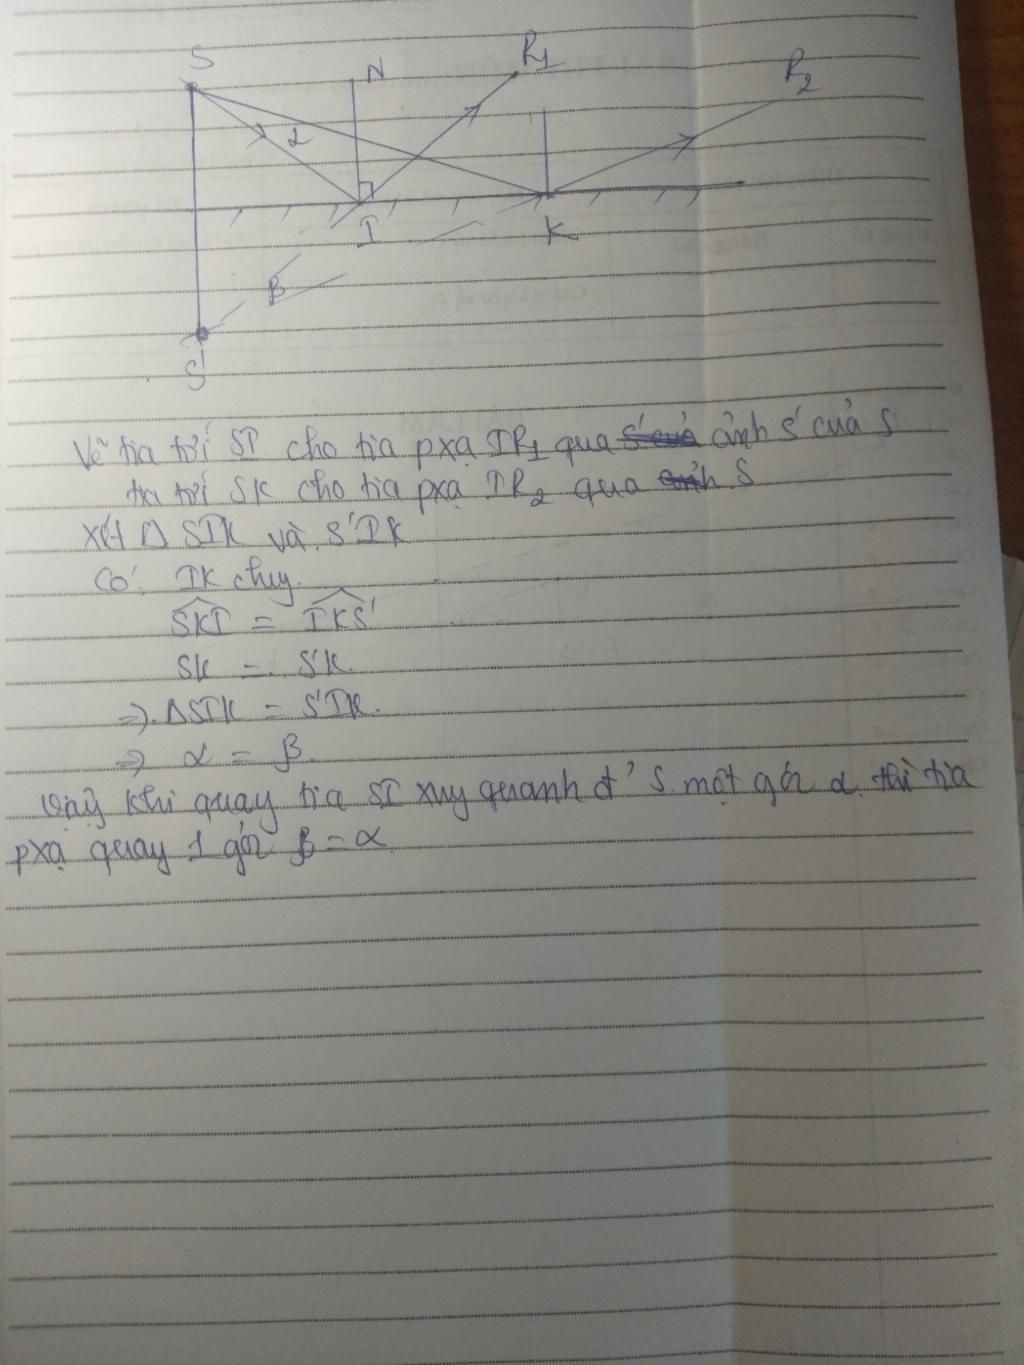 S N R1 R2
α
I K
β
S'
Vẽ tia tới SI cho tia pxạ IR1 qua ảnh S' của S
tia tới SK cho tia pxạ IR2 qua S
Xét Δ SIK và S'IK
Có: IK chug.
SKI = IKS'
SK = S'K.
=> ΔSIK = S'IK.
=> α = β.
Vậy khi quay tia SI xuy quanh đ' S một góc α thì tia
pxạ quay 1 góc β = α